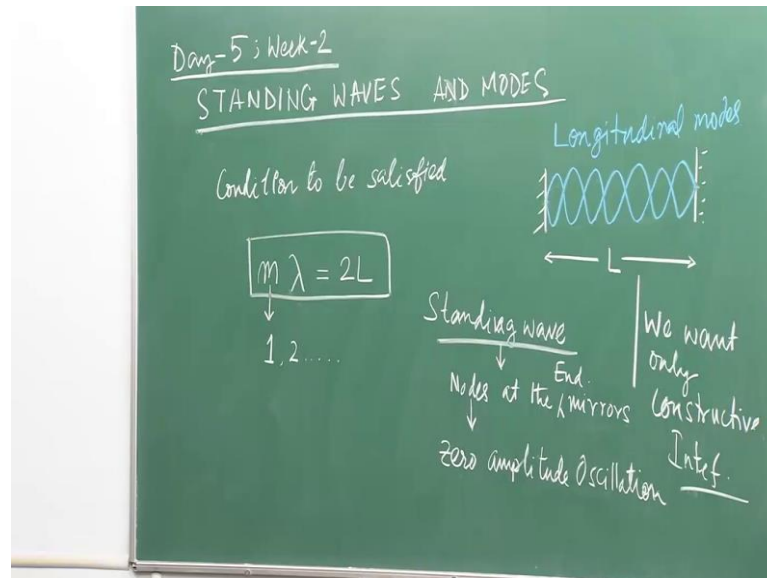 Day-5; Week-2
STANDING WAVES AND MODES
Longitudinal modes
Condition to be satisfied
L
m λ = 2L
1, 2 .....
Standing wave
End.
Nodes at the mirrors
Zero amplitude Oscillation
We want
only
Constructive
Intef.